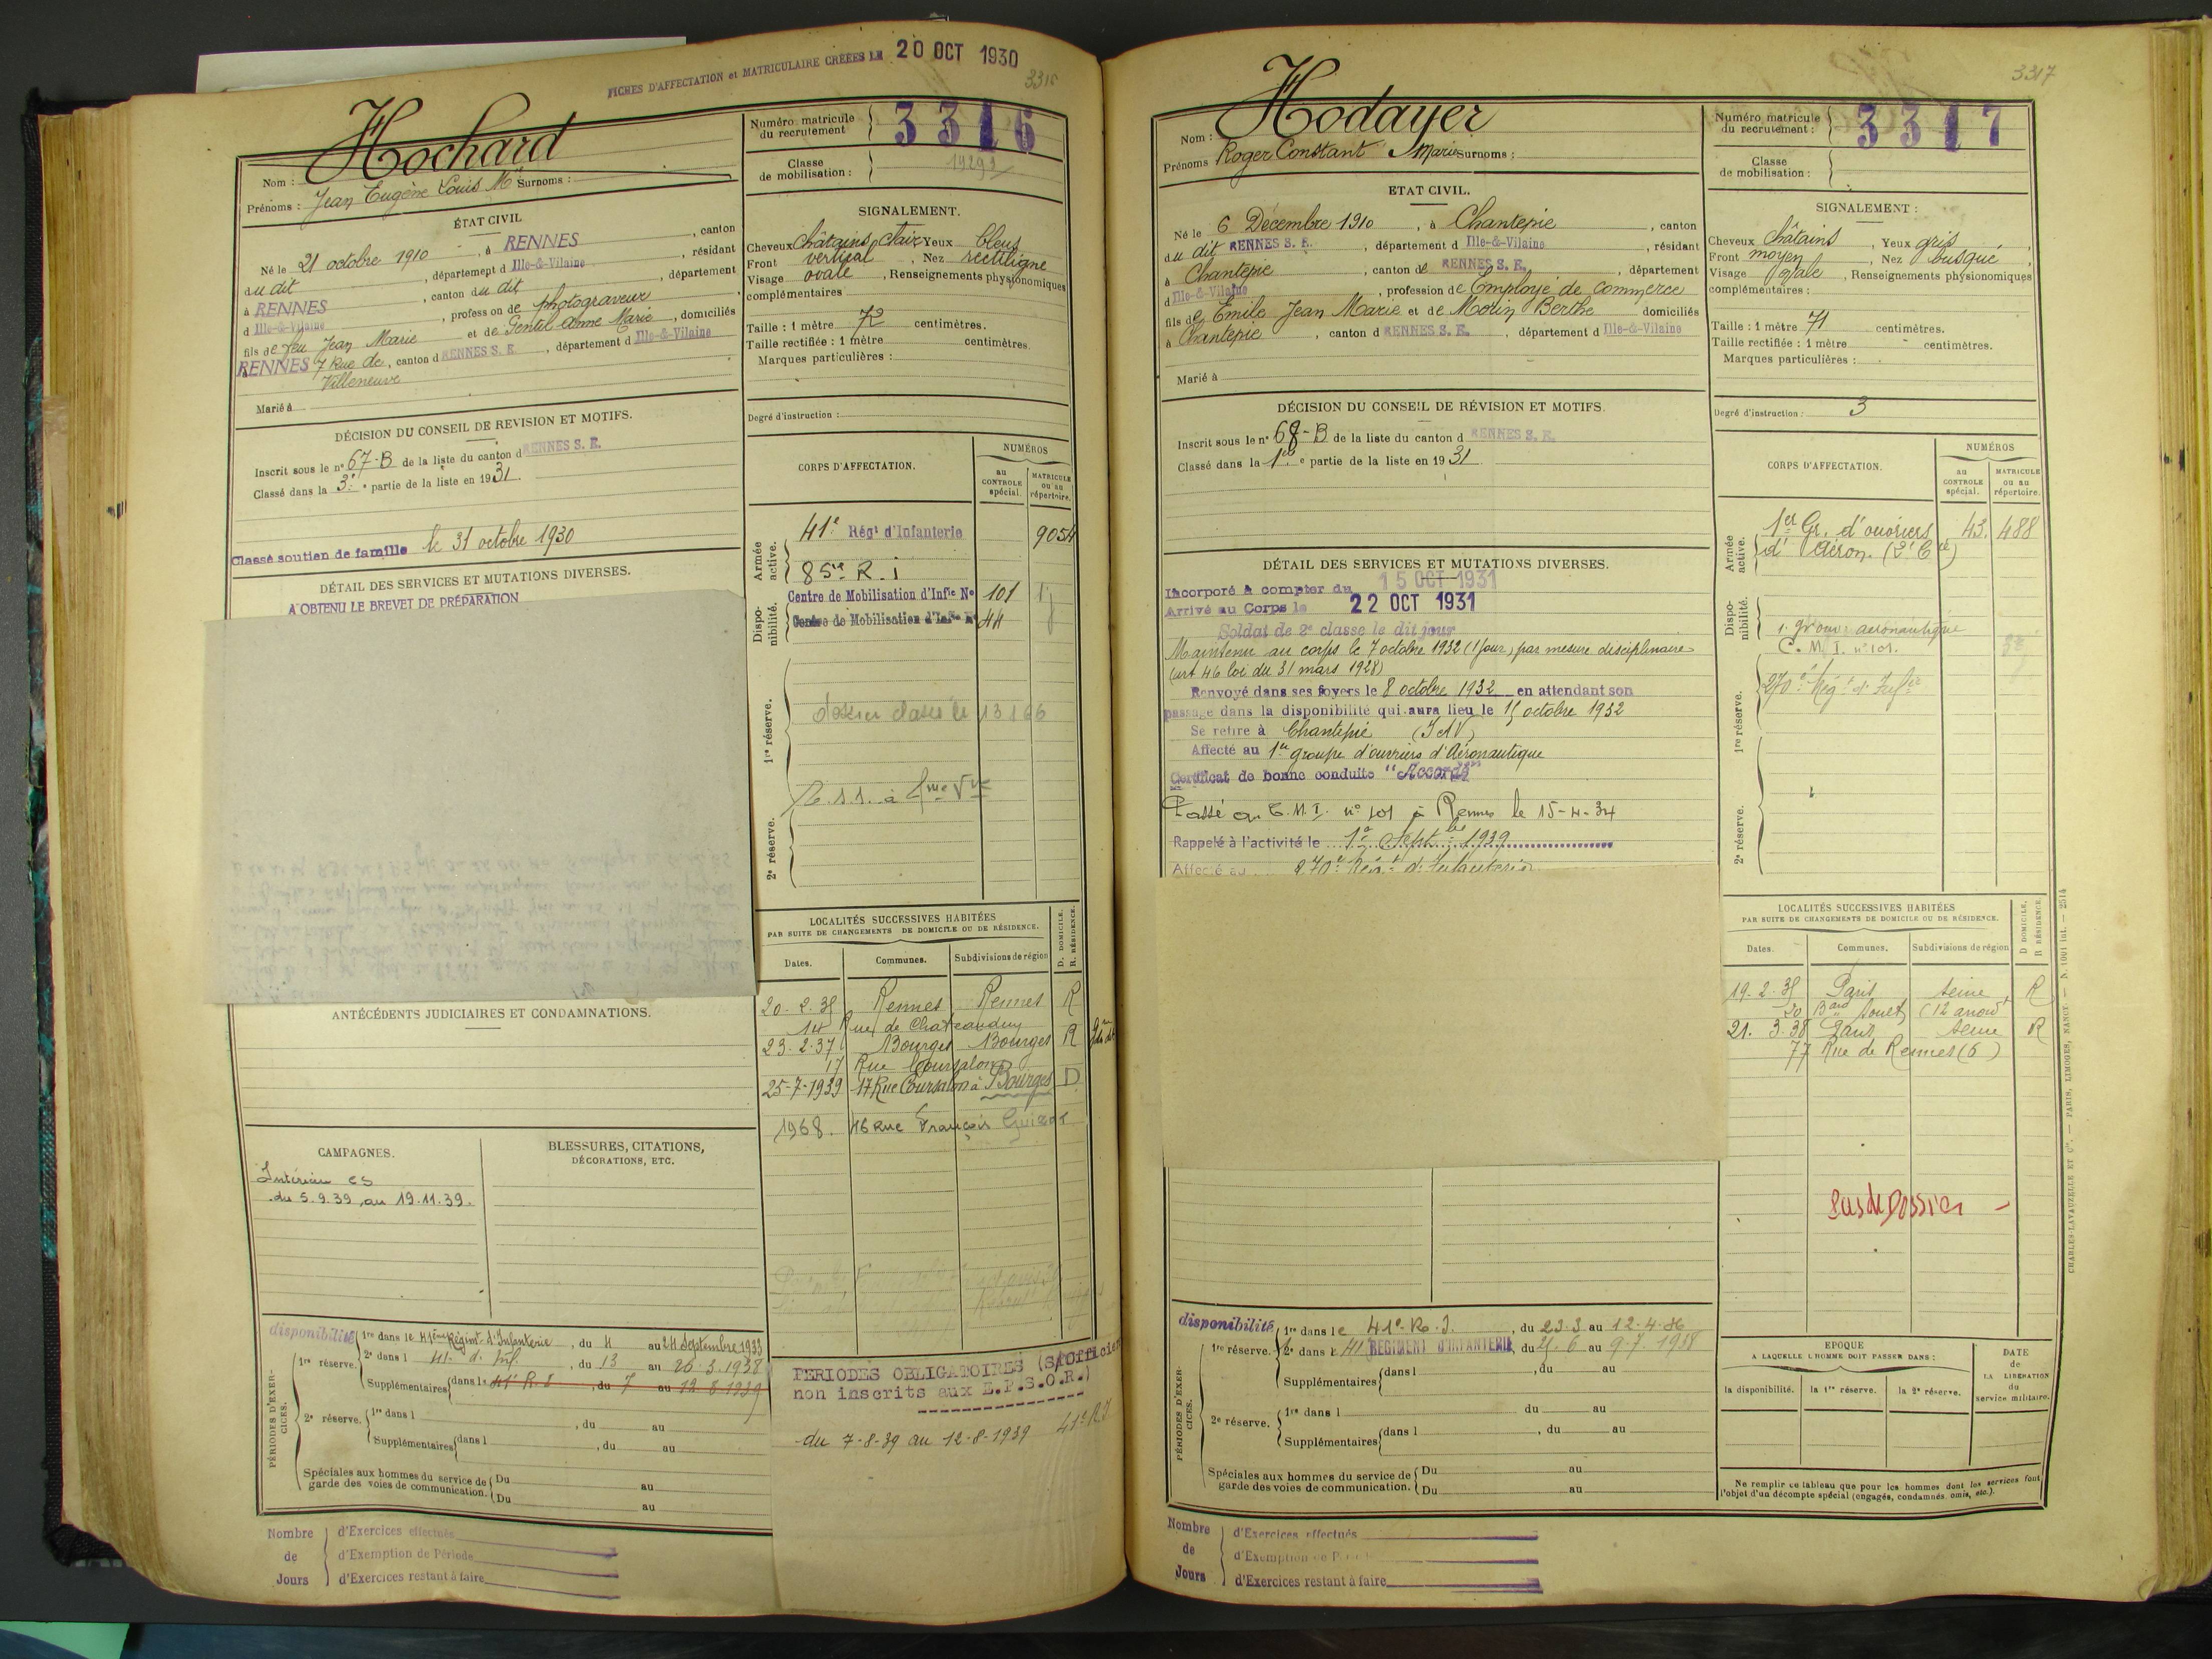 FICHES D'AFFECTATION et MATRICULAIRE CRÉÉES LE 20 OCT 1930
Hochard
Nom :
Prénoms : Jean Eugène Louis Mie Surnoms :
Numéro matricule du recrutement 3316
Classe de mobilisation :
ÉTAT CIVIL
Né le 21 octobre 1910, à RENNES, canton
du dit, département d Ille-&-Vilaine, résidant
à RENNES, canton du dit, département
d Ille-&-Vilaine, profession de photograveur
fils de feu Jean Marie et de Gentil Anne Marie, domiciliés
RENNES 7 Rue de, canton d RENNES S. E., département d Ille-&-Vilaine
Villeneuve
Marié à
SIGNALEMENT.
Cheveux châtains clair Yeux bleus
Front vertical, Nez rectiligne
Visage ovale, Renseignements physionomiques
complémentaires
Taille : 1 mètre 72 centimètres.
Taille rectifiée : 1 mètre centimètres.
Marques particulières :
Degré d'instruction :
DÉCISION DU CONSEIL DE REVISION ET MOTIFS.
Inscrit sous le n° 67-B de la liste du canton d RENNES S. E.
Classé dans la 3e partie de la liste en 1931.
Classé soutien de famille le 31 octobre 1930
DÉTAIL DES SERVICES ET MUTATIONS DIVERSES.
A OBTENU LE BREVET DE PRÉPARATION
CORPS D'AFFECTATION.
NUMÉROS
au CONTROLE spécial.
MATRICULE ou au répertoire.
Armée active.
41e Régt d'Infanterie 9054
85e R. i
Disponibilité.
Centre de Mobilisation d'Infie No 101
Centre de Mobilisation d'Infie No 44
1re réserve.
dossier classé le 13 1 66
2e réserve.
LOCALITÉS SUCCESSIVES HABITÉES
PAR SUITE DE CHANGEMENTS DE DOMICILE OU DE RÉSIDENCE.
D. DOMICILE. R. RÉSIDENCE.
Dates. Communes. Subdivisions de région
20-2-35 Rennes Rennes R
14 Rue de Chateaudun
23-2-37 Bourges Bourges R
17 Rue Coursalon
25-7-1939 17 Rue Coursalon à Bourges D
1968. 46 Rue François Guizot
ANTÉCÉDENTS JUDICIAIRES ET CONDAMNATIONS.
CAMPAGNES.
Intérieur CS
du 5.9.39 au 19.11.39.
BLESSURES, CITATIONS,
DÉCORATIONS, ETC.
disponibilité
PÉRIODES D'EXERCICES.
1re dans le 41ème Régimt d'Infanterie, du 4 au 24 Septembre 1933
1re réserve. 2e dans l 41e d'Inf., du 13 au 26-3-1938
Supplémentaires dans l 41e R. I, du 7 au 12-8-1939
2e réserve. 1re dans l, du au
Supplémentaires dans l, du au
Spéciales aux hommes du service de garde des voies de communication. Du au
Du au
PERIODES OBLIGATOIRES (S/Officier
non inscrits aux E.P.S.O.R.)
du 7-8-39 au 12-8-1939 41e RI
Nombre de Jours
d'Exercices effectués
d'Exemption de Période
d'Exercices restant à faire
3317
Hodayer
Nom :
Prénoms Roger Constant Marie Surnoms :
Numéro matricule du recrutement : 3317
Classe de mobilisation :
ETAT CIVIL.
Né le 6 Décembre 1910, à Chantepie, canton
du dit RENNES S. E., département d Ille-&-Vilaine, résidant
à Chantepie, canton de RENNES S. E., département
d Ille-&-Vilaine, profession de Employé de commerce
fils de Emile Jean Marie et de Morin Berthe domiciliés
à Chantepie, canton d RENNES S. E., département d Ille-&-Vilaine
Marié à
SIGNALEMENT :
Cheveux châtains, Yeux gris,
Front moyen, Nez busqué,
Visage ovale, Renseignements physionomiques
complémentaires :
Taille : 1 mètre 71 centimètres.
Taille rectifiée : 1 mètre centimètres.
Marques particulières :
Degré d'instruction : 3
DÉCISION DU CONSEIL DE RÉVISION ET MOTIFS.
Inscrit sous le n° 68-B de la liste du canton d RENNES S. E.
Classé dans la 1re partie de la liste en 1931
DÉTAIL DES SERVICES ET MUTATIONS DIVERSES.
Incorporé à compter du 15 OCT 1931
Arrivé au Corps le 22 OCT 1931
Soldat de 2e classe le dit jour
Maintenu au corps le 7 octobre 1932 (1 jour) par mesure disciplinaire
(art 46 loi du 31 mars 1928)
Renvoyé dans ses foyers le 8 octobre 1932 en attendant son
passage dans la disponibilité qui aura lieu le 15 octobre 1932
Se retire à Chantepie (I et V)
Affecté au 1er groupe d'ouvriers d'Aéronautique
Certificat de bonne conduite "Accordé"
Passé au C.M.I. n° 101 à Rennes le 15-4-34
Rappelé à l'activité le 1er Septbre 1939
Affecté au 270e Régt d'Infanterie
CORPS D'AFFECTATION.
NUMÉROS
au CONTROLE spécial.
MATRICULE ou au répertoire.
Armée active.
1er Gr. d'ouvriers 43. 488
d'Aéron. (2e Cie)
Disponibilité.
1. Group aéronautique
C. M. I. n° 101.
1re réserve.
270e Régt d'Infie
2e réserve.
LOCALITÉS SUCCESSIVES HABITÉES
PAR SUITE DE CHANGEMENTS DE DOMICILE OU DE RÉSIDENCE.
D DOMICILE. R RÉSIDENCE.
Dates. Communes. Subdivisions de région
19-2-35 Paris Seine R
20 Bard Soult (12 arrondt
21.3.38 Paris Seine R
77 Rue de Rennes (6)
Pas de Dossier -
disponibilité
PÉRIODES D'EXERCICES.
1re dans le 41e R. I., du 23.3 au 12-4-36
1re réserve. 2e dans l 41 REGIMENT D'INFANTERIE, du 21.6 au 9-7-1938
Supplémentaires dans l, du au
2e réserve. 1re dans l du au
Supplémentaires dans l, du au
Spéciales aux hommes du service de garde des voies de communication. Du au
Du au
EPOQUE
A LAQUELLE L'HOMME DOIT PASSER DANS :
la disponibilité. la 1re réserve. la 2e réserve.
DATE de LA LIBÉRATION du service militaire.
Ne remplir ce tableau que pour les hommes dont les services font
l'objet d'un décompte spécial (engagés, condamnés, omis, etc.).
CHARLES-LAVAUZELLE ET Cie. — PARIS, LIMOGES, NANCY. — N. 1001 int. — 2514
Nombre de Jours
d'Exercices effectués
d'Exemption de
d'Exercices restant à faire